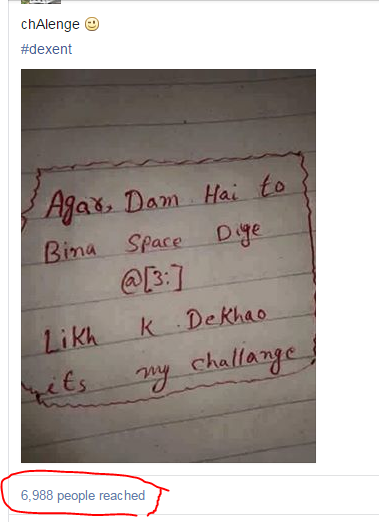 chAlenge 🙂
#dexent
Agar, Dam Hai to
Bina Space Diye
@[3:]
Likh k Dekhao
its my challange
6,988 people reached